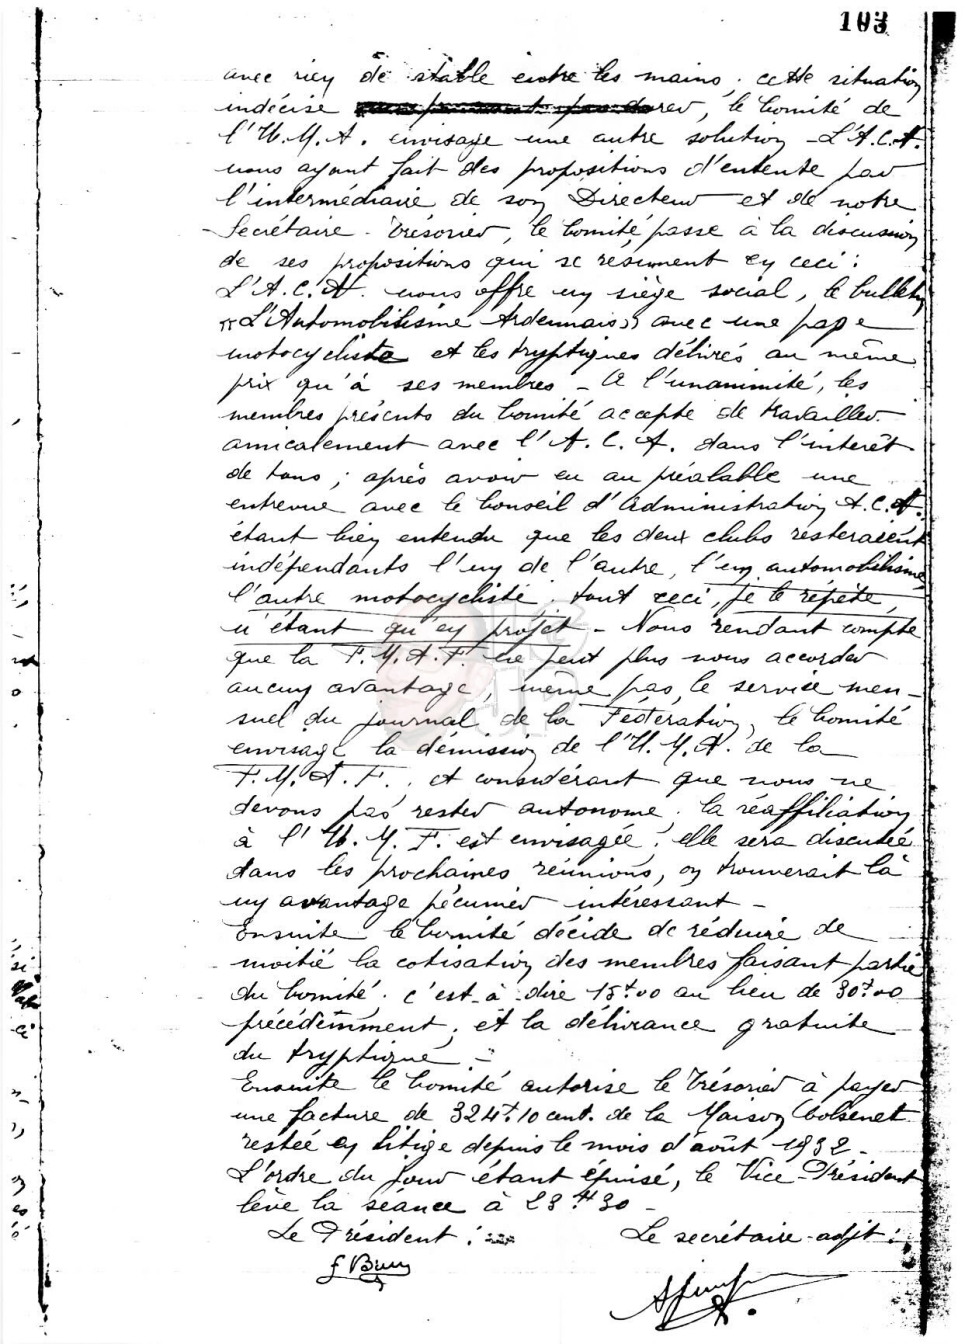 103
avec rien de stable entre les mains, cette situation
indécise, le Comité de
l'U.M.A. envisage une autre solution - L'A.C.A.
nous ayant fait des propositions d'entente par
l'intermédiaire de son Directeur et de notre
Secrétaire-Trésorier, le Comité passe à la discussion
de ses propositions qui se résument en ceci :
L'A.C.A. nous offre un siège social, le bulletin
"L'Automobilisme Ardennais" avec une page
motocycliste et les tryptiques délivrés au même
prix qu'à ses membres - A l'unanimité, les
membres présents du Comité accepte de travailler
amicalement avec l'A.C.A. dans l'intérêt
de tous ; après avoir eu au préalable une
entrevue avec le Conseil d'Administration A.C.A.
étant bien entendu que les deux clubs resteraient
indépendants l'un de l'autre, l'un automobilisme,
l'autre motocycliste. tout ceci, je le répète,
n'étant qu'en projet - Nous rendant compte
que la F.M.A.F. ne peut plus nous accorder
aucun avantage, même pas le service men-
suel du journal de la Fédération, le Comité
envisage la démission de l'U.M.A. de la
F.M.A.F., et considérant que nous ne
devons pas rester autonome, la réaffiliation
à l'U.M.F. est envisagée, elle sera discutée
dans les prochaines réunions, on trouverait là
un avantage pécunier intéressant -
Ensuite le Comité décide de réduire de
moitié la cotisation des membres faisant partie
du Comité. c'est à dire 15f00 au lieu de 30f00
précédemment, et la délivrance gratuite
du tryptique -
Ensuite le Comité autorise le Trésorier à payer
une facture de 324f10 cent. de la Maison Colsenet
restée en litige depuis le mois d'août 1932 -
L'ordre du jour étant épuisé, le Vice-Président
lève la séance à 23H30 -
Le Président : Le secrétaire-adjt :